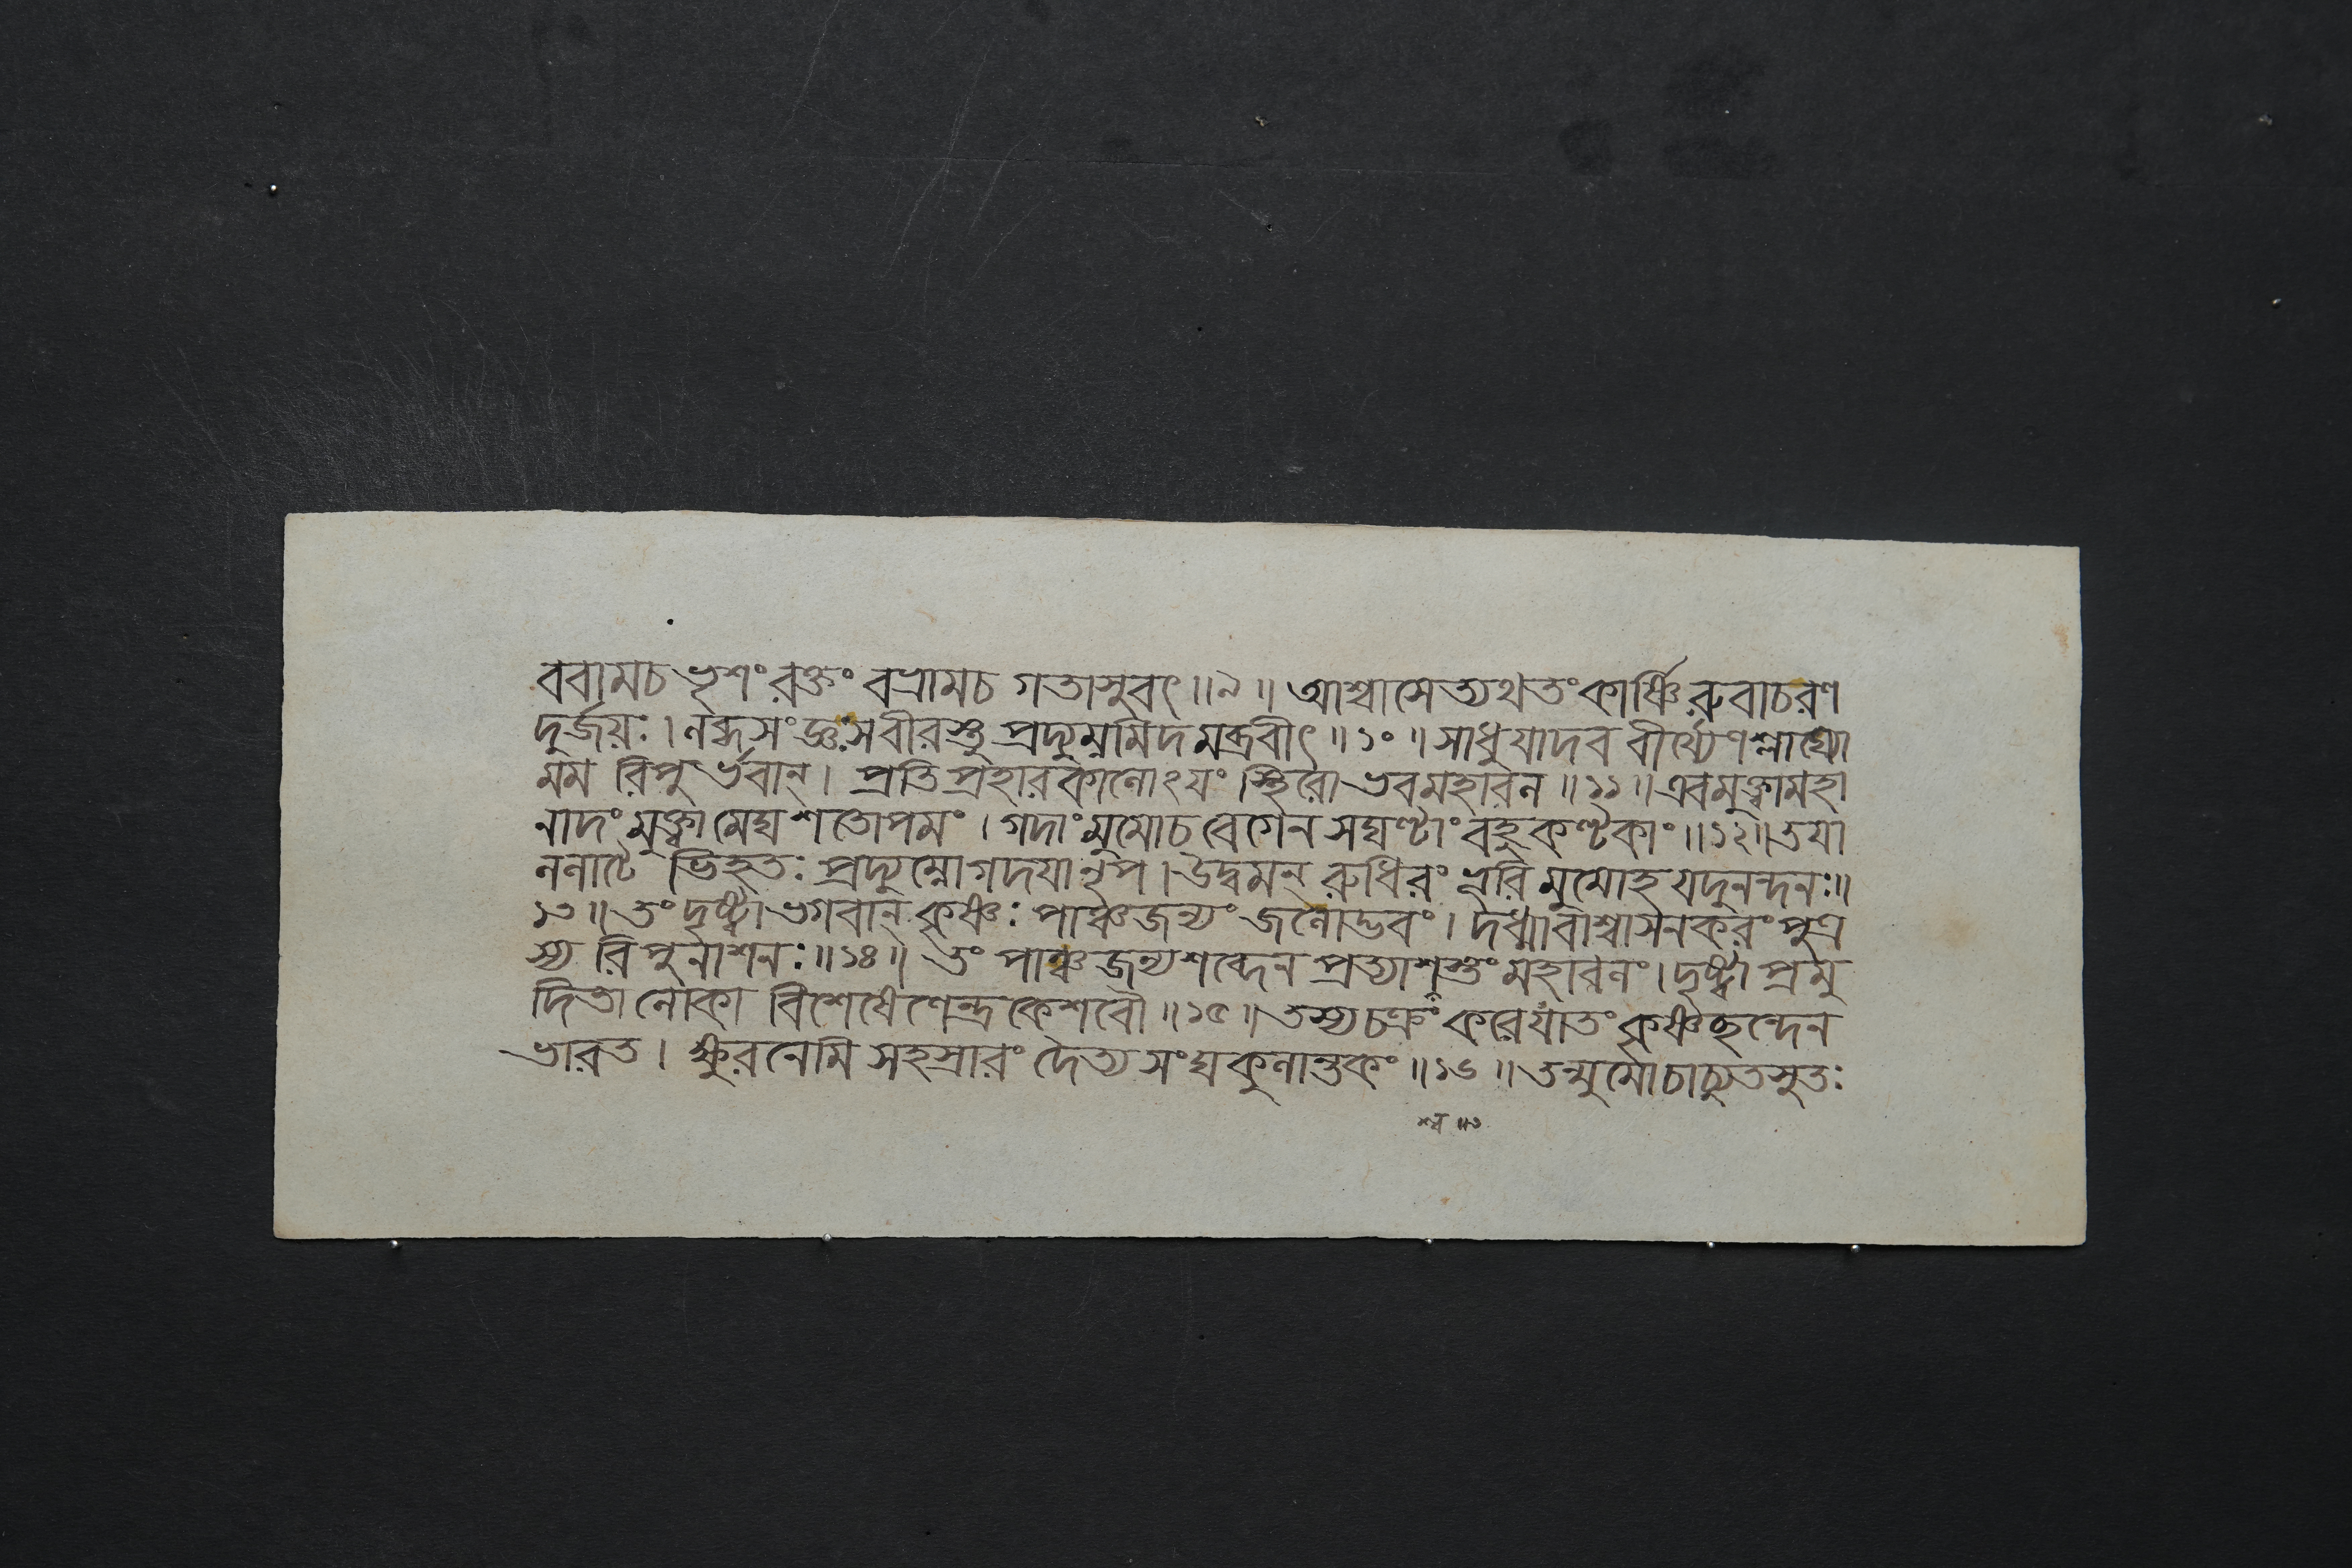 ববামচ ভৃশং রক্তং বভ্রামচ গতাসুবৎ॥৯॥ আশ্বাসেত্যথতং কার্ষ্ণিরুবাচরণ
দুর্জয়ঃ। লব্ধসংজ্ঞঃসবীরস্তু প্রদ্যুম্নমিদমব্রবীৎ॥১০॥ সাধুযাদব বীর্য্যেণশ্লাঘ্যো
মম রিপুর্ভবান্। প্রতিপ্রহারকালোঽযং স্থিরোভবমহাবল॥১১॥এবমুক্ত্বামহা
নাদং মুক্ত্বা মেঘশতোপমং। গদাং মুমোচ বেগেন সঘণ্টাং বহুকণ্টকাং॥১২॥তযা
ললাটে ভিহতঃ প্রদ্যুম্নোগদযানৃপ। উদ্বমন্ রুধিরং ভূরি মুমোহ যদুনন্দনঃ॥
১৩॥তং দৃষ্ট্বা ভগবান্ কৃষ্ণঃ পাঞ্চজন্যং জলোদ্ভবং। দধ্মাবাশ্বাসনকরং পুত্র
স্য রিপুনাশনঃ॥১৪॥ তং পাঞ্চজন্যশব্দেন প্রত্যাশ্বস্তং মহাবলং। দৃষ্ট্বা প্রমু
দিতা লোকা বিশেষেণেন্দ্রকেশবৌ॥১৫॥ তস্যচক্রং করেযাতং কৃষ্ণছন্দেন
ভারত। ক্ষুরনেমি সহস্রারং দৈত্য সংঘকুলান্তকং॥১৬॥ তন্মুমোচাচ্যুতসুতঃ